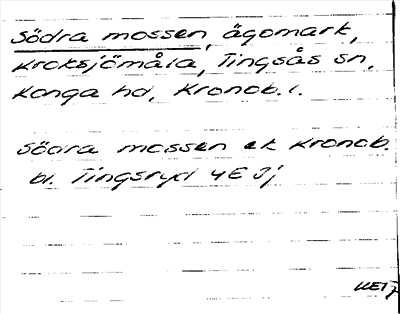 Södra mossen, ägomark,
Kroksjömåla, Tingsås sn,
Konga hd, Kronob. l.
Södra mossen ek Kronob.
bl. Tingsryd 4E 3j